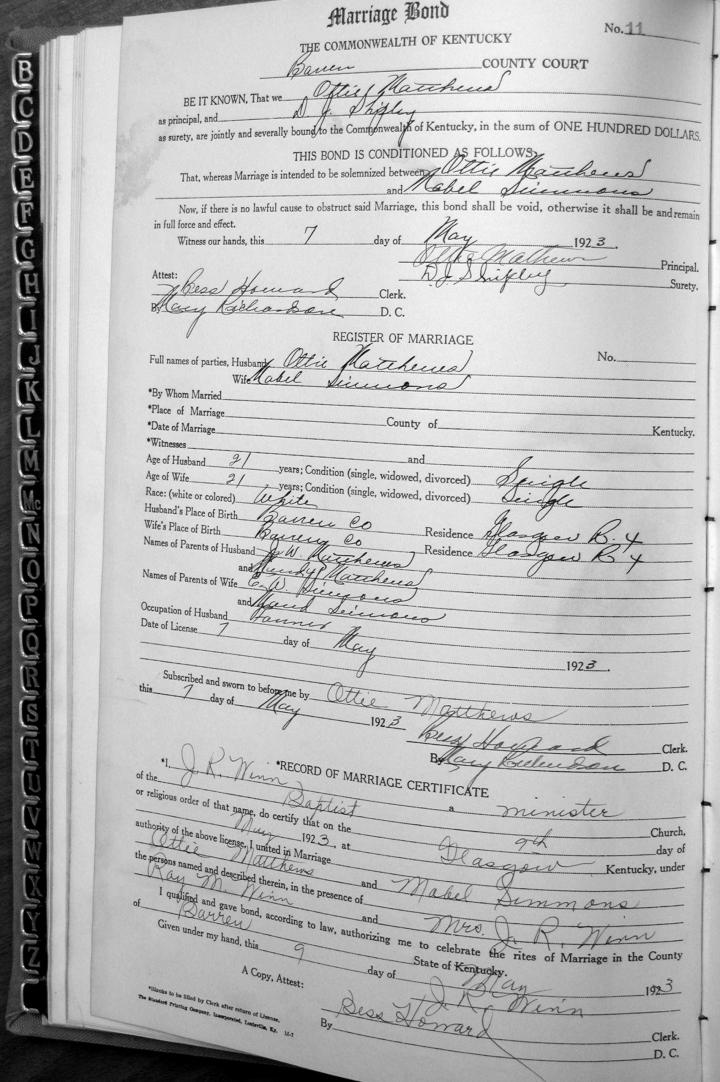 Marriage Bond
No. 11
THE COMMONWEALTH OF KENTUCKY
Barren COUNTY COURT
BE IT KNOWN, That we Ottie Matthews
as principal, and D. J. Shipley
as surety, are jointly and severally bound to the Commonwealth of Kentucky, in the sum of ONE HUNDRED DOLLARS.
THIS BOND IS CONDITIONED AS FOLLOWS:
That, whereas Marriage is intended to be solemnized between Ottie Matthews
and Mabel Simmons
Now, if there is no lawful cause to obstruct said Marriage, this bond shall be void, otherwise it shall be and remain
in full force and effect.
Witness our hands, this 7 day of May 1923.
Ottie Mathews Principal.
D. J. Shipley Surety.
Attest:
Bess Howard Clerk.
By Mary Richardson D. C.
REGISTER OF MARRIAGE
Full names of parties, Husband Ottie Matthews No.
Wife Mabel Simmons
*By Whom Married
*Place of Marriage County of Kentucky.
*Date of Marriage
*Witnesses and
Age of Husband 21 years; Condition (single, widowed, divorced) Single
Age of Wife 21 years; Condition (single, widowed, divorced) Single
Race: (white or colored) White
Husband's Place of Birth Barren Co Residence Glasgow R. 4
Wife's Place of Birth Barren Co Residence Glasgow R 4
Names of Parents of Husband W. Matthews
and Matthews
Names of Parents of Wife E. W. Simmons
and Maud Simmons
Occupation of Husband Farmer
Date of License 7 day of May 1923.
Subscribed and sworn to before me by Ottie Matthews
this 7 day of May 1923
Bess Howard Clerk.
By Mary Richardson D. C.
*RECORD OF MARRIAGE CERTIFICATE
*I, J. R. Winn a minister
of the Baptist Church,
or religious order of that name, do certify that on the 9th day of
May 1923, at Glasgow Kentucky, under
authority of the above license, I united in Marriage
Ottie Matthews and Mabel Simmons
the persons named and described therein, in the presence of
Ray M. Winn and Mrs. J. R. Winn
I qualified and gave bond, according to law, authorizing me to celebrate the rites of Marriage in the County
of Barren State of Kentucky.
Given under my hand, this 9 day of May 1923
J. R. Winn
A Copy, Attest: Bess Howard Clerk.
By D. C.
*Blanks to be filled by Clerk after return of License.
The Standard Printing Company, Incorporated, Louisville, Ky.
B
C
D
E
F
G
H
I
J
K
L
M
Mc
N
O
P
Q
R
S
T
U
V
W
X
Y
Z